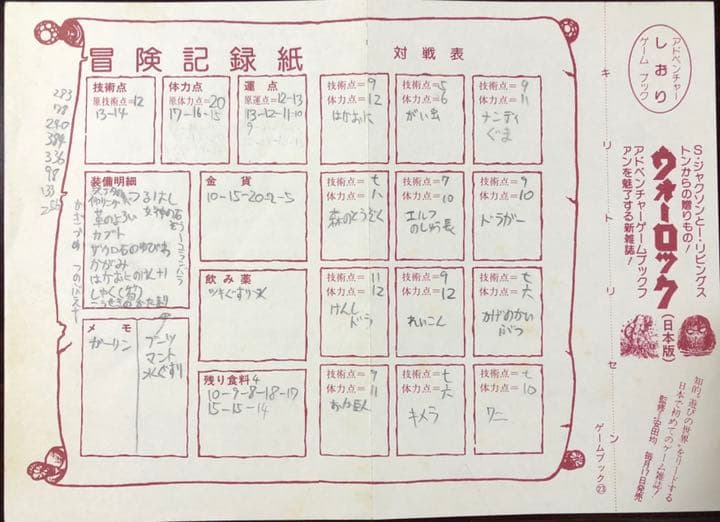 冒険記録紙
対戦表
技術点
原技術点=12
13-14
体力点
原体力点=20
17-16-15
運点
原運点=12-13
13-12-11-10
9
技術点=9
体力点=12
はかおに
技術点=5
体力点=6
がい虫
技術点=9
体力点=11
ナンディ
ぐま
装備明細
つるはし
革のよろい
カブト
かがみ
金貨
10-15-20-2-5
技術点=七
体力点=八
森のとうぞく
技術点=7
体力点=10
エルフ
のしゅう長
技術点=9
体力点=10
ドラガー
飲み薬
ツキぐすり-水
技術点=11
体力点=12
けんし
ドラ
技術点=9
体力点=12
れいこん
技術点=七
体力点=六
かげのかい
ぶつ
メモ
ガーリン
ブーツ
マント
水ぐすり
残り食料4
10-9-8-18-17
15-15-14
技術点=9
体力点=11
技術点=七
体力点=六
キメラ
技術点=七
体力点=10
ワニ
293
78
290
384
336
98
133
キリトリセン
ゲームブック㉓
アドベンチャー
ゲームブック
しおり
S・ジャクソンとI・リビングス
トンからの贈りもの!
アドベンチャーゲームブックフ
ァンを魅了する新雑誌!
ウォーロック
(日本版)
知的"遊びの世界"をリードする
日本で初めてのゲーム雑誌!
監修/安田均 毎月17日発売